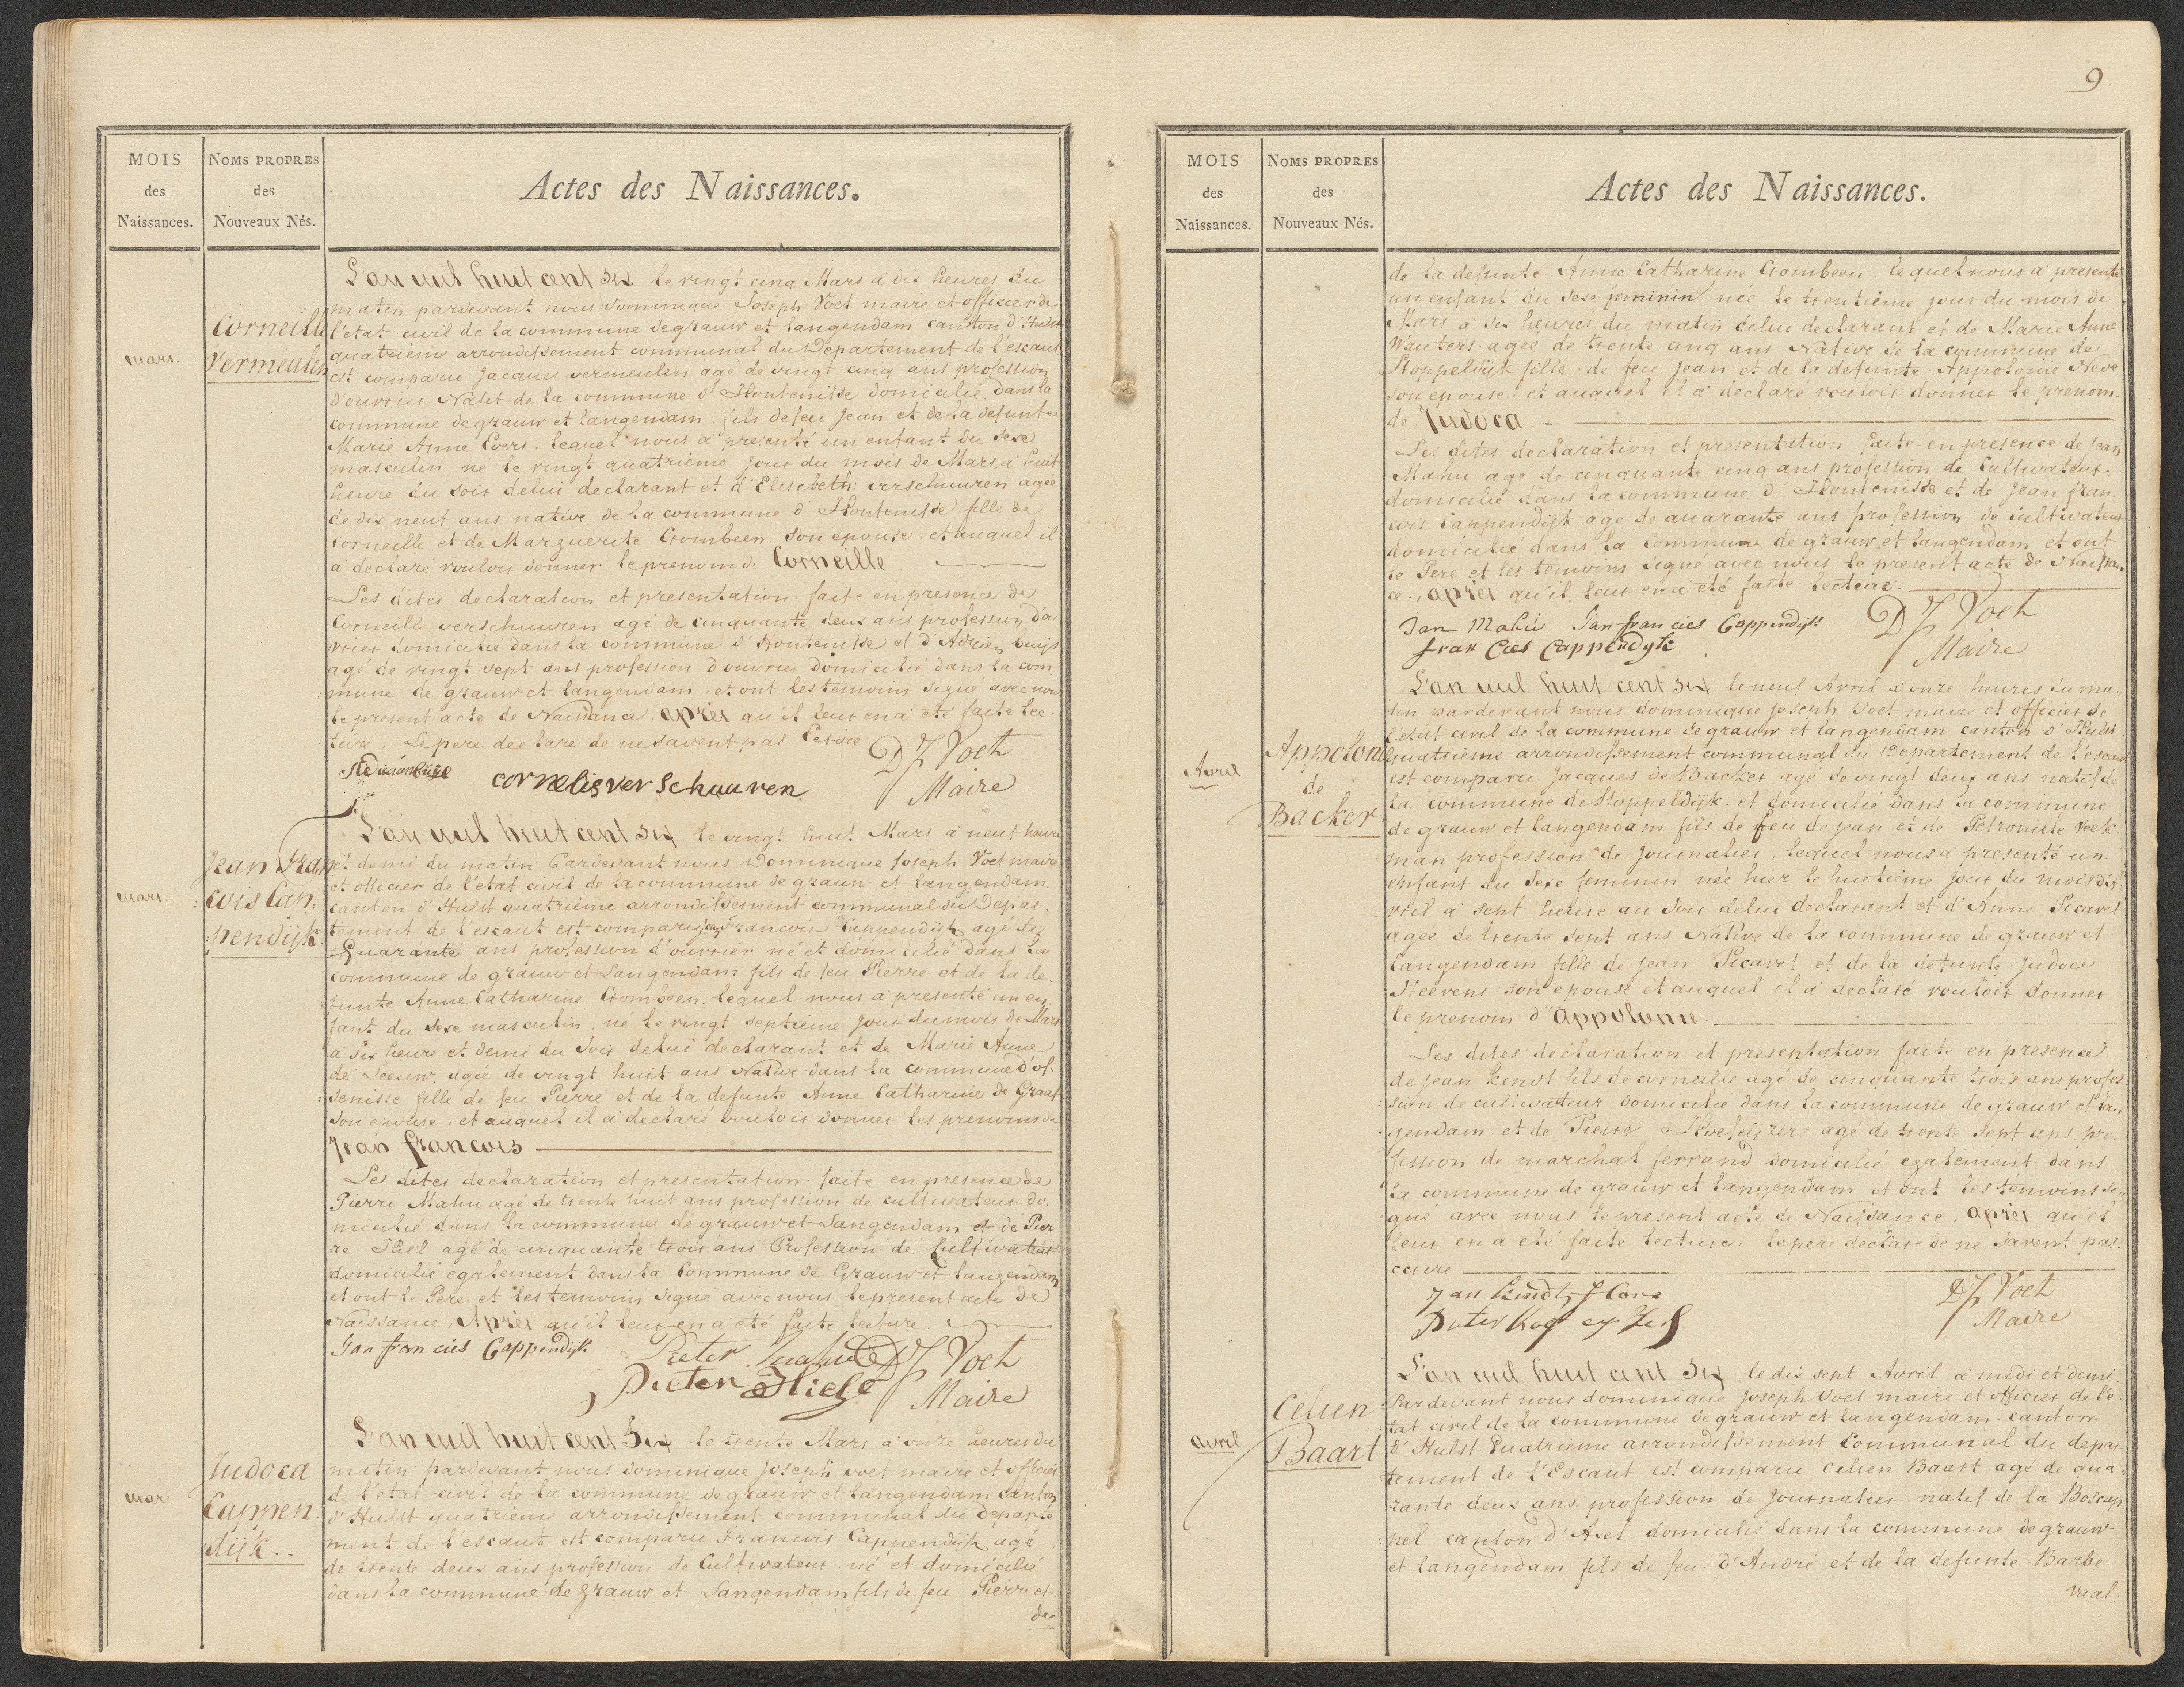 MOIS
des
Naissances.
NOMS PROPRES
des
Nouveaux Nés.
Actes des Naissances.
mars.
Corneille
Vermeulen
L'an mil huit cent six le vingt cinq Mars à dix heures du
matin pardevant nous Dominique Joseph Voet maire et officier de
l'état civil de la commune de grauw et langendam canton d'Hulst
quatrième arrondissement communal du Département de l'escaut
est comparu Jacques vermeulen agé de vingt cinq ans profession
d'ouvrier Natif de la commune d'Hontenisse domicilié dans la
commune de grauw et langendam fils de feu Jean et de la defunte
Marie Anne Evers. lequel nous a presenté un enfant du sexe
masculin né le vingt quatrième jour du mois de Mars à huit
heure du soir delui declarant et d'Elisebeth verschuuren agée
de dix neuf ans native de la commune d'Hontenisse fille de
Corneille et de Marguerite Crombeen son epouse. et auquel il
a declaré vouloir donner le prenom de Corneille.
Les dites declaration et presentation faite en presence de
Corneille verschuuren agé de cinquante deux ans profession d'ou
vrier domicilié dans la commune d'Hontenisse et d'Adrien buijs
agé de vingt sept ans profession d'ouvrier domicilié dans la com
mune de grauw et langendam, et ont les temoins signé avec nous
le present acte de Naissance, après qu'il leur en a eté faite lec
ture. Le pere declare de ne savent pas Ecrire
cornelis ver Schuuren
DJ Voet
Maire
mars.
Jean Fran
cois Cap
pendijk
L'an mil huit cent six le vingt huit Mars a neuf heure
et demi du matin Pardevant nous Dominique Joseph Voet maire
et officier de l'état civil de la commune de grauw et langendam
canton d'Hulst quatrième arrondissement communal du Depar
tement de l'escaut est comparu Jean Francois Cappendijk agé de
Quarante ans profession d'ouvrier né et domicilié dans la
commune de grauw et Langendam fils de feu Pierre et de la de
funte Anne Catharine Crombeen. lequel nous a presenté un en
fant du sexe masculin, né le vingt septieme jour du mois de Mars
a six heure et demi du soir delui declarant et de Marie Anne
de Leeuw, agée de vingt huit ans Native dans la commune d'os
senisse fille de feu Pierre et de la defunte Anne Catharine de Graaf
son epouse, et auquel il a declaré vouloir donner les prenoms de
Jean francois
Les dites declaration et presentation faite en presence de
Pierre Mahu agé de trente huit ans profession de cultivateur do
micilié dans la commune de grauw et Langendam et de Pier
re Hiel agé de cinquante trois ans Profession de Cultivateur
domicilié egalement dans la Commune de Grauw et langendam
et ont le Pere et les temoins signé avec nous le present acte de
Naissance, Après qu'il leur en a eté faite lecture.
Jan fran cies Cappendijk
Pieter mahu
Pieter Hiel
DJ Voet
Maire
mars
Judoca
Cappen
dijk..
L'an mil huit cent Six le trente Mars à onze heures du
matin pardevant nous dominique Joseph voet maire et officier
de l'état civil de la commune de grauw et langendam canton
d'Hulst quatrième arrondissement communal du departe
ment de l'escaut est comparu Francois Cappendijk agé
de trente deux ans profession de Cultivateur né et domicilié
dans la commune de grauw et Langendam fils de feu Pierre et
de
9
MOIS
des
Naissances.
NOMS PROPRES
des
Nouveaux Nés.
Actes des Naissances.
de la defunte Anne Catharine Crombeen lequel nous a presenté
un enfant du sexe feminin née le trentième jour du mois de
Mars a six heures du matin delui declarant et de Marie Anne
Wauters agée de trente cinq ans Native de la commune de
Stoppeldijk fille de feu Jean et de la defunte Appolonie Neve
son epouse. et auquel il a declaré vouloir donner le prenom
de Judoca.
Les dites declaration et presentation faite en presence de Jean
Mahu agé de cinquante cinq ans profession de Cultivateur
domicilié dans la commune d'Hontenisse et de Jean fran
cois Cappendijk agé de quarante ans profession de Cultivateur
domicilié dans la Commune de grauw et langendam, et ont
le Pere et les temoins signé avec nous le present acte de Naissan
ce., après qu'il leur en a été faite lecture.
Jan Mahú Jan fran cies Cappendijk
fran Cies Cappendyk
DJ Voet
Maire
Avril
Appolone
de
Backer
L'an mil huit cent six le neuf Avril à onze heures du ma
tin pardevant nous dominique joseph Voet maire et officier de
l'état civil de la commune de grauw et langendam canton d'Hulst
quatrième arrondissement communal du Departement de l'escaut
est comparu Jacques de Backer agé de vingt deux ans natif de
la commune de Stoppeldijk et domicilié dans la commune
de grauw et langendam fils de feu de jean et de Petronille Roek
man profession de journalier. lequel nous a presenté un
enfant du sexe feminin née hier le huitième jour du mois d'A
vril a sept heure au soir delui declarant et d'Anne Picavet
agée de trente sept ans Native de la commune de grauw et
langendam fille de Jean Picavet et de la defunte Judoce
Steevens son epouse et auquel il a declaré vouloir donner
le prenom d'Appolonie
Les dites declaration et presentation faite en presence
de Jean kindt fils de corneilie agé de cinquante trois ans profes
sion de cultivateur domicilie dans la commune de grauw et lan
gendam et de Pierre Hoefeijzers agé de trente sept ans pro
fession de marchal ferrand domicilié egalement dans
la commune de grauw et langendam et ont les temoins si
gné avec nous le present acte de Naissance, après qu'il
leur en a été faite lecture. le pere declare de ne savent pas
ecrire
Jan kindt f Cors
DJ Voet
Maire
avril
Celien
Baart
L'an mil huit cent Six le dix sept Avril à midi et demi.
Pardevant nous dominique joseph Voet maire et officier de l'é
tat civil de la commune de grauw et langendam canton
d'Hulst Quatrième arrondissement Communal du depar
tement de l'Escaut est comparu Celien Baart agé de qua
rante deux ans profession de journalier natif de la Boscap
pel canton d'Axel domicilié dans la commune de grauw
et langendam fils de feu d'André et de la defunte Barbe